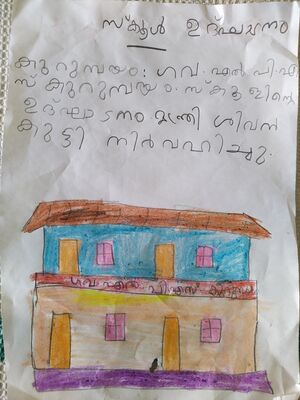 സ്കൂൾ ഉദ്ഘാടനം
കുറുമ്പയം: ഗവ. എൽ.പി.എ
സ് കുറുമ്പയം. സ്കൂളിന്റെ
ഉദ്ഘാടനം മന്ത്രി ശിവൻ
കുട്ടി നിർവഹിച്ചു.
ഗവ എൽ പിഎസ്